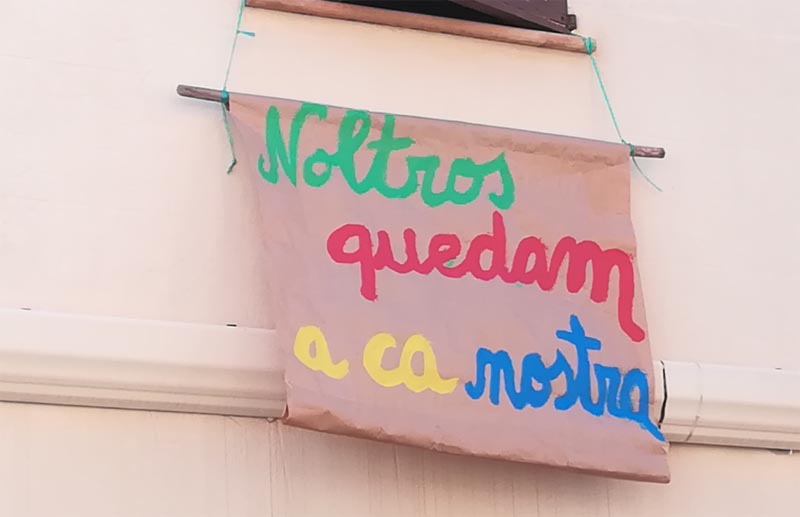 Noltros
quedam
a ca nostra